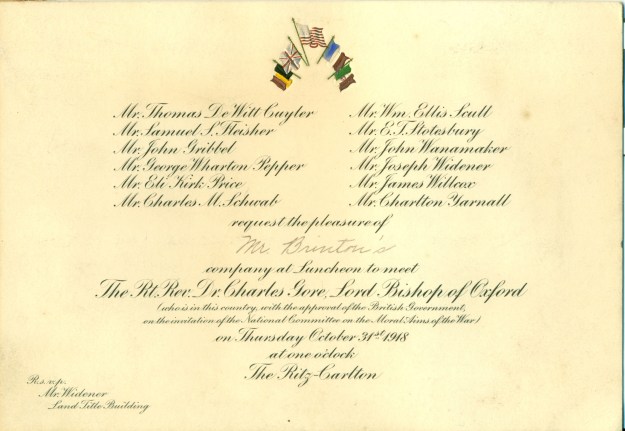 Mr. Thomas DeWitt Cuyler
Mr. Samuel S. Fleisher
Mr. John Gribbel
Mr. George Wharton Pepper
Mr. Eli Kirk Price
Mr. Charles M. Schwab
Mr. Wm. Ellis Scull
Mr. E. T. Stotesbury
Mr. John Wanamaker
Mr. Joseph Widener
Mr. James Willcox
Mr. Charlton Yarnall
request the pleasure of
Mr. Brinton's
company at Luncheon to meet
The Rt. Rev. Dr. Charles Gore, Lord Bishop of Oxford
(who is in this country, with the approval of the British Government,
on the invitation of the National Committee on the Moral Aims of the War)
on Thursday October 31st 1918
at one o'clock
The Ritz-Carlton
R.s.v.p.
Mr. Widener
Land Title Building